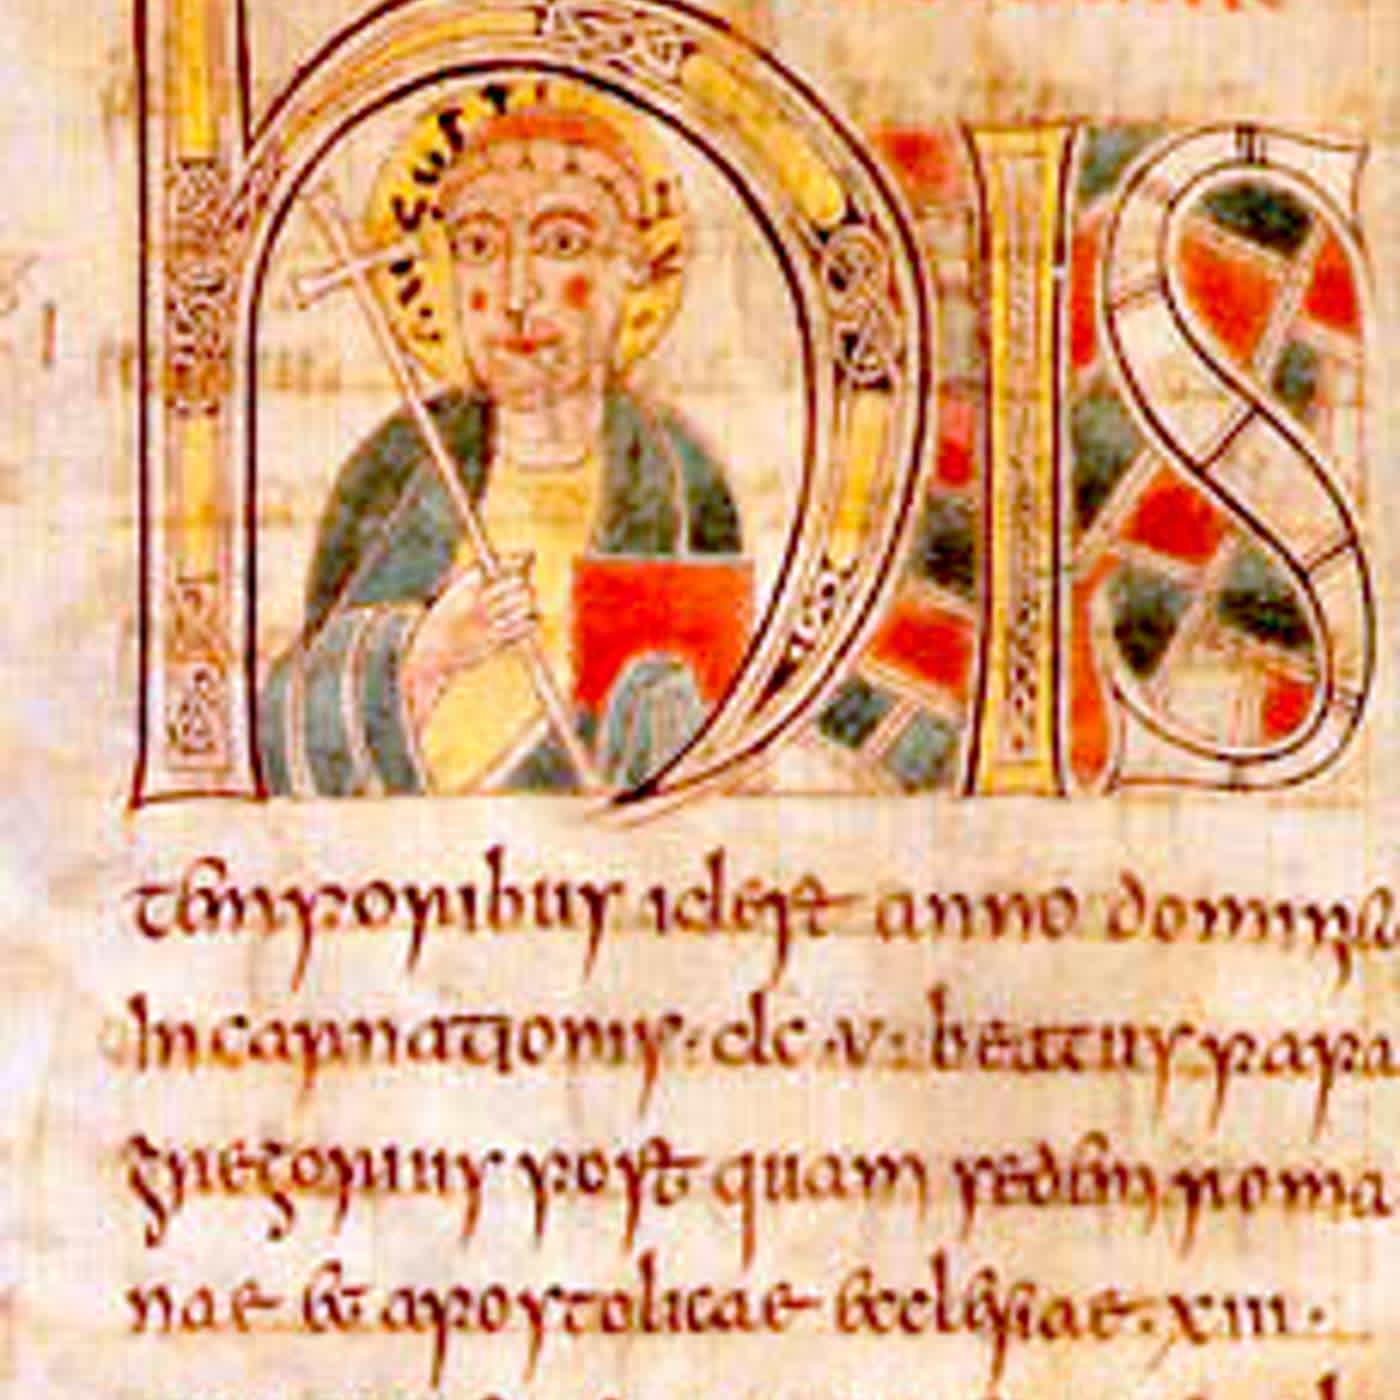 hIS
temporibus idest anno dominicae
Incarnationis · dc · v · beatus papa
gregorius post quam sedem roma
nae et apostolicae ecclesiae · xiii ·